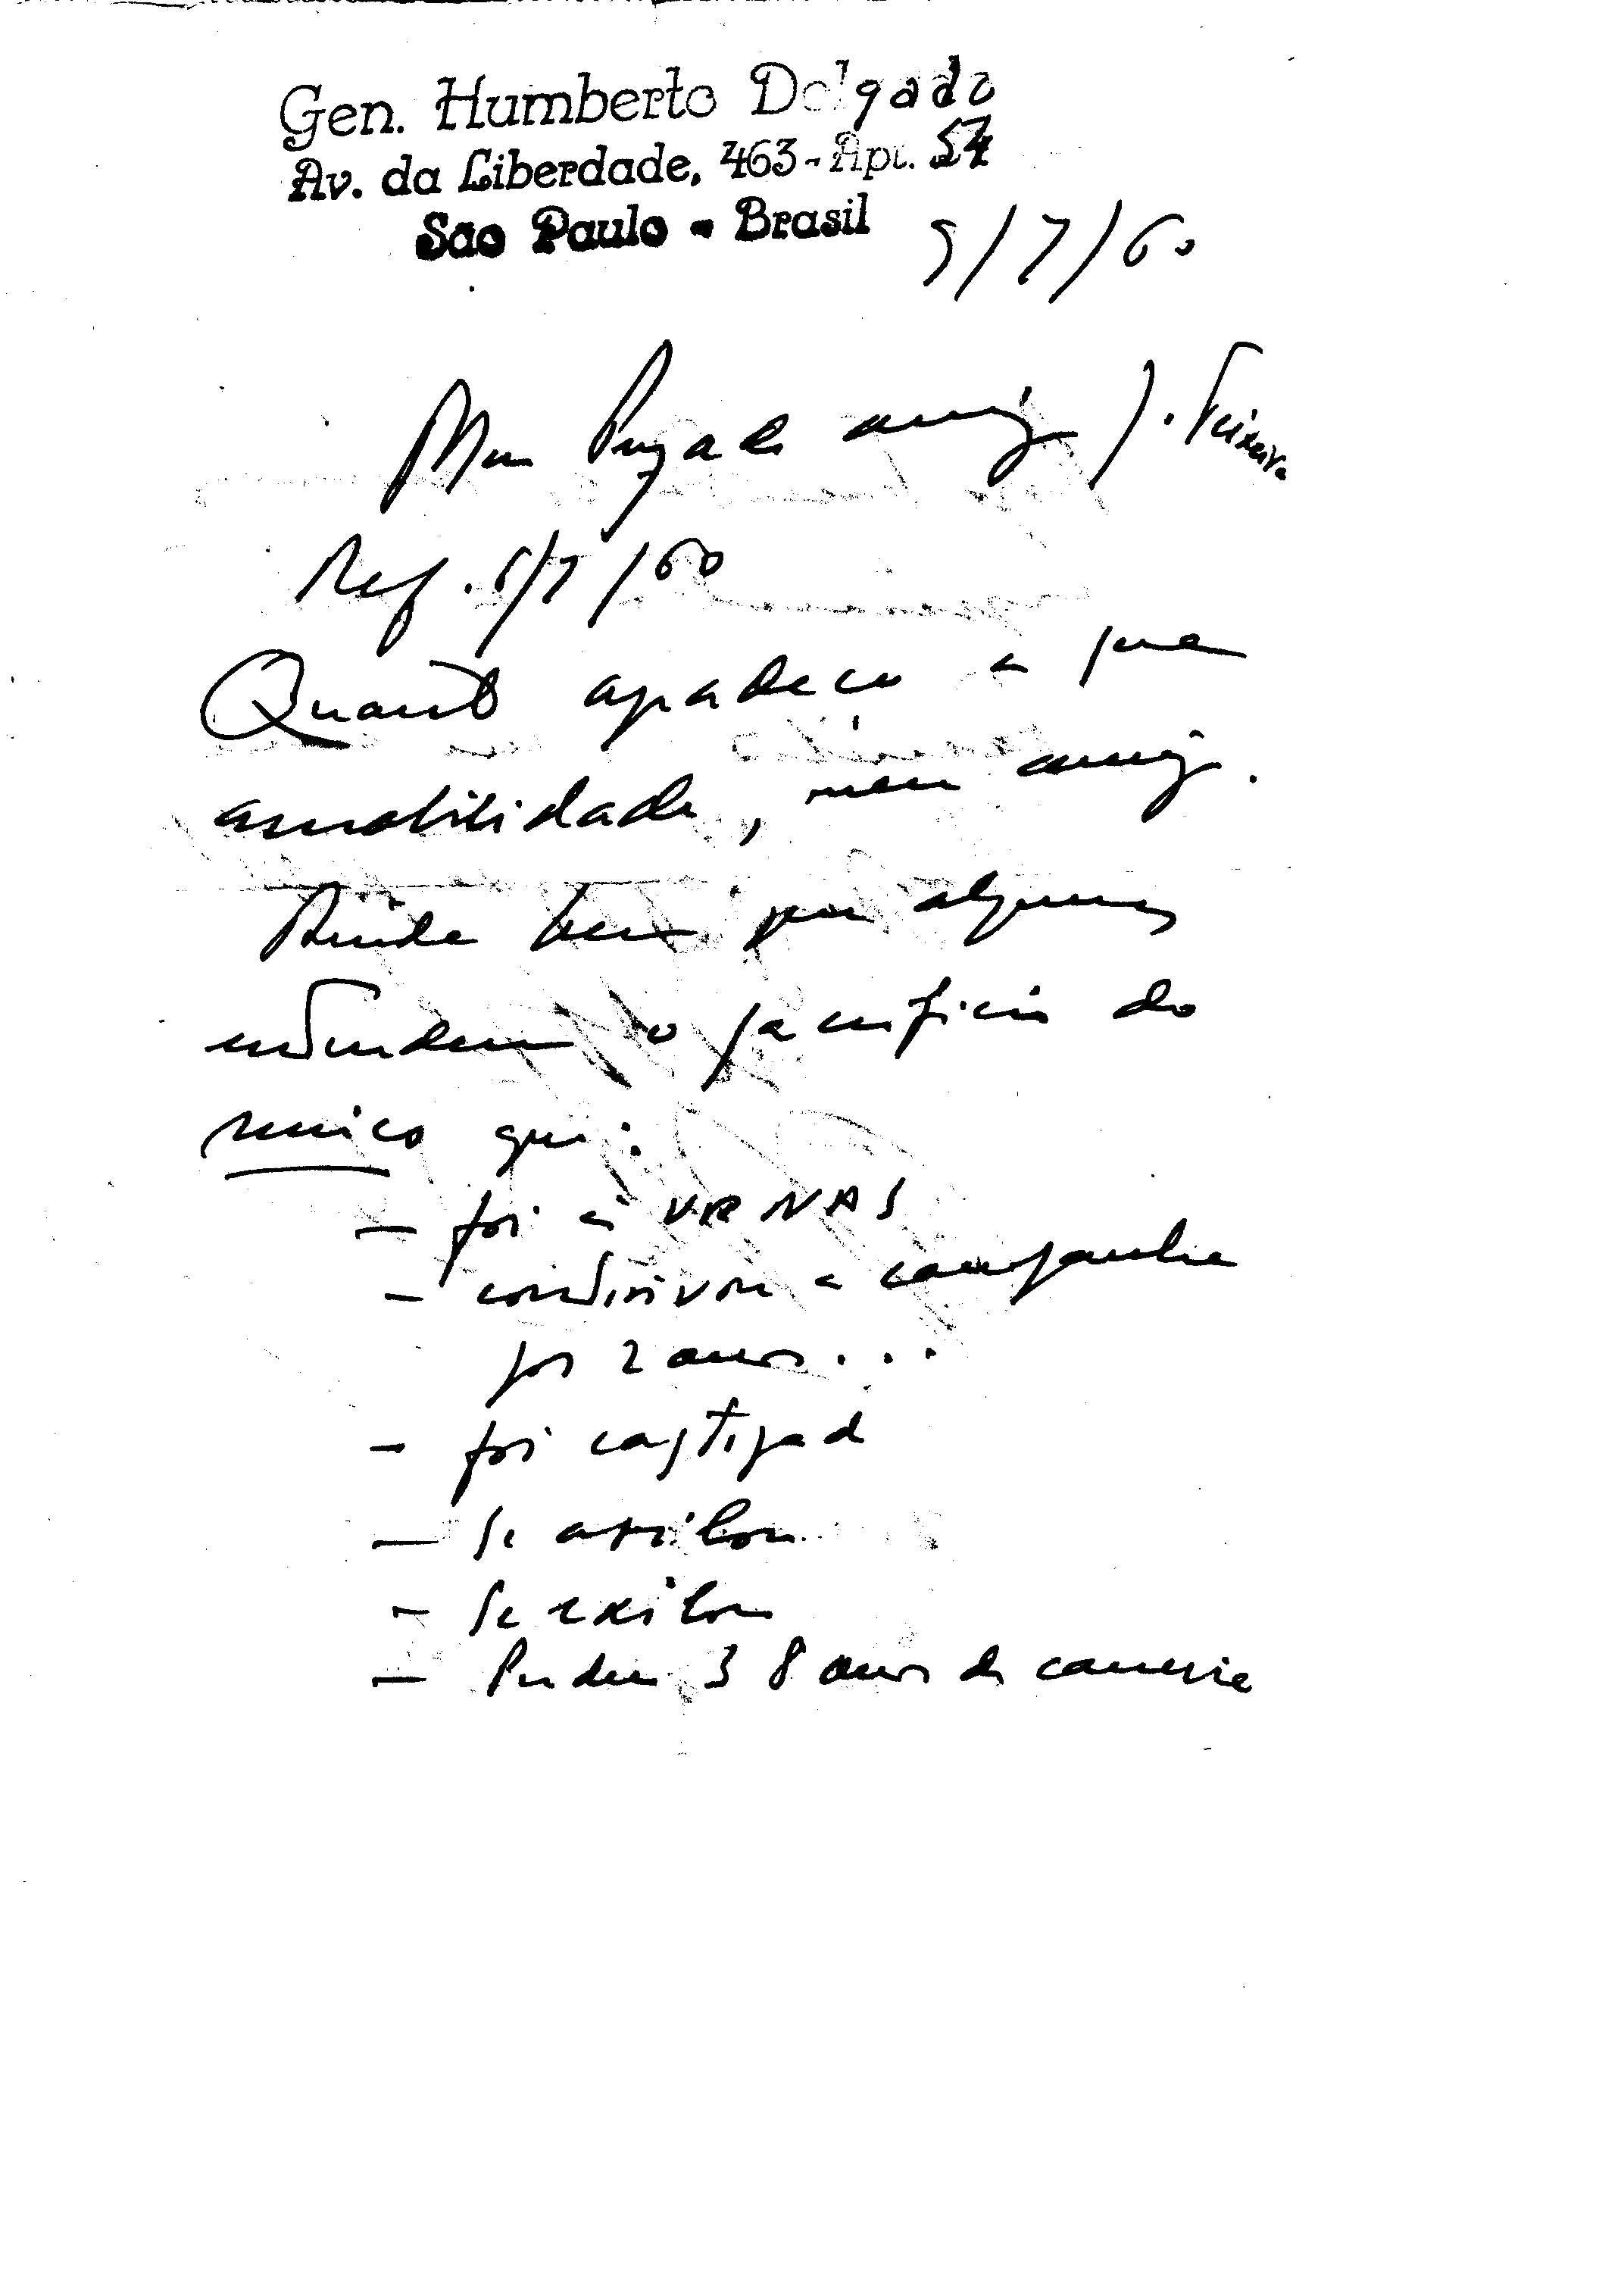 Gen. Humberto Delgado
Av. da Liberdade, 463 - Apt. 54
São Paulo - Brasil
5/7/60
Meu Prezado amigo J. Teixeira
Ref. 5/7/60
Quanto agradeço a sua
amabilidade, meu amigo.
Ainda bem que alguns
entendem o sacrificio do
unico que:
— foi às URNAS
— continuou a campanha
por 2 anos...
— foi castigad
— Se asilou
— Se exilou
— Perdeu 38 anos de carreira